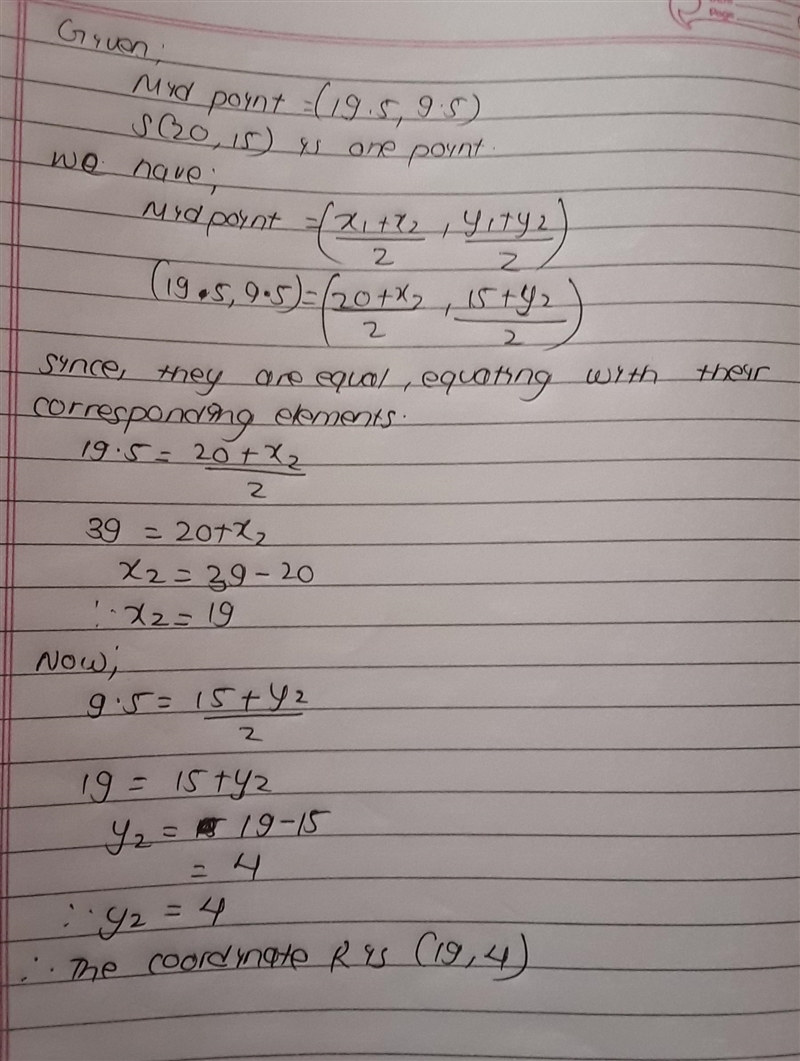 Given;
Mid point = (19.5, 9.5)
S(20, 15) is one point.
We have;
Midpoint = (x₁+x₂/2, y₁+y₂/2)
(19.5, 9.5) = (20+x₂/2, 15+y₂/2)
Since, they are equal, equating with their
corresponding elements.
19.5 = 20+x₂/2
39 = 20+x₂
x₂ = 39-20
∴ x₂ = 19
Now;
9.5 = 15+y₂/2
19 = 15+y₂
y₂ = 19-15
= 4
∴ y₂ = 4
∴ The coordinate R is (19, 4)